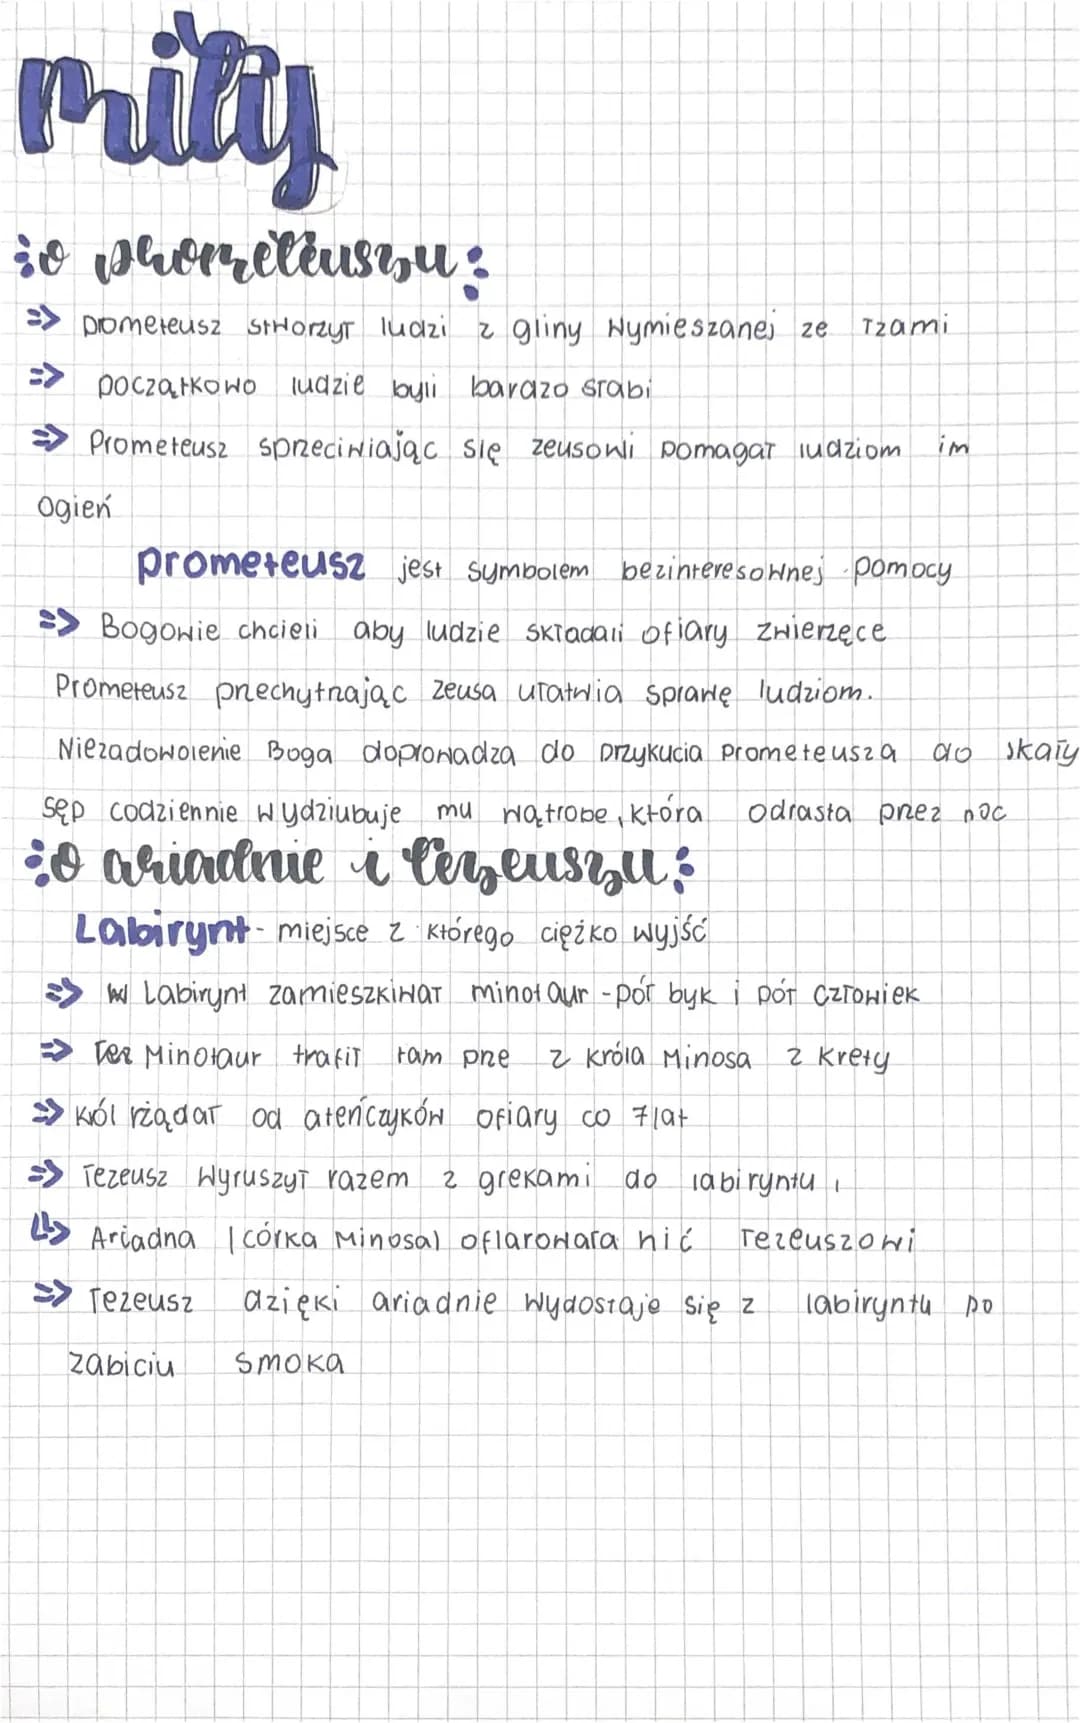 mity
o prometeuszu:
=> prometeusz stworzył ludzi z gliny wymieszanej ze łzami
=> początkowo ludzie byli bardzo słabi
=> Prometeusz sprzeciwiając się zeusowi pomagał ludziom im
ogień
prometeusz jest symbolem bezinteresownej pomocy
=> Bogowie chcieli aby ludzie składali ofiary zwierzęce
Prometeusz przechytrzając zeusa ułatwia sprawę ludziom.
Niezadowolenie Boga doprowadza do przykucia prometeusza do skały
sęp codziennie wydziubuje mu wątrobe, która odrasta przez noc
o ariadnie i tezeuszu:
Labirynt - miejsce z którego ciężko wyjść
=> w Labirynt zamieszkiwał minotaur - pół byk i pół człowiek
=> Ten Minotaur trafił tam prze z króla Minosa z krety
=> król rżądał od ateńczyków ofiary co 7 lat
=> Tezeusz wyruszył razem z grekami do labiryntu,
↳> Ariadna (córka Minosa) ofiarowała nić Tezeuszowi
=> Tezeusz dzięki ariadnie wydostaje się z labiryntu po
zabiciu smoka